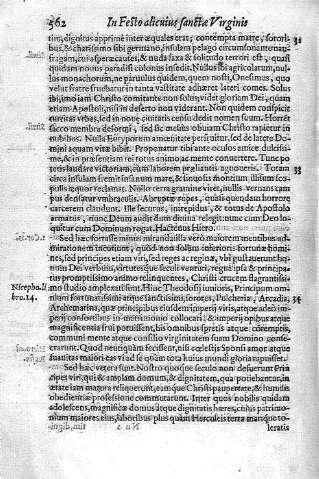 562 In Festo alicuius sanctæ Virginis
tim, dignus apprime inter æquales erat; contempta matre, sorori-
bus, & charissimo sibi germano, insulam pelago circumsonante nau-
fragam, cui asperæ cautes, & nuda saxa & solitudo terrori est, quasi
quidam nouus paradisi colonus insedit. Nullus ibi agricolarum, nul-
lus monachorum, ne paruulus quidem, quem nosti, Onesimus, quo
velut fratre fruebatur in tanta vastitate adhæret lateri comes. Solus
ibi, imo iam Christo comitante non solus, videt gloriam Dei, quam
etiam Apostoli, nisi in deserto non viderant. Non quidem conspicit
turritas vrbes, sed in nouæ ciuitatis censu dedit nomen suum. Horrẽt
sacco membra deformi, sed sic melius obuiam Christo rapietur in
nubibus. Nulla Euryporum amœnitate perfruitur, sed de latere Do-
mini aquam vitæ bibit. Propone tibi ante oculos amice dulcissi-
me, & in præsentiam rei totus animo ac mente conuertere. Tunc po-
teris laudare victoriam, cum laborem præliantis agnoueris. Totam
circa insulam fremit insanum mare, & sinuosis montibus illisum sco-
pulis æquor reclamat. Nullo terra gramine viret, nullis vernans cam-
pus densatur vmbraculis. Abruptæ rupes, quasi quendam horroris
carcerem claudunt. Ille securus, intrepidus, & totus de Apostolo
armatus, nunc Deum audit dum diuina relegit, nunc cum Deo lo-
quitur cum Dominum rogat. Hactenus Hiero.
Sed hæc fortasse minus miranda: illa vero maiorem mentibus ad-
mirationem incutiunt, quod non solum inferioris fortunæ homi-
nes, sed principes etiam viri, sed reges ac reginæ, vbi gustauerunt bo-
num Dei verbum, virtutesque seculi venturi, regna ipsa & principa-
tus promptissimo animo relinquentes, Christi crucem flagrantissi-
mo studio amplexati sunt. Hinc Theodosij iuniores, Principum om-
nium fortunatissimi atque sanctissimi, sorores, Pulcheria, Arcadia,
cum principibus eiusdem imperij viris, atque adeo im-
perij consortibus in matrimonium collocari; & imperij opibus atque
magnificentia frui potuissent, his omnibus spretis atque contemptis,
communi mente atque consilio virginitatem suam Domino conse-
crarunt. Quod neutiquam fecissent, nisi cœlestis Sponsi amor atque
suauitas maior eas vi ad se quàm tota huius mundi gloria rapuisset.
Sed hæc vetera sunt. Nostro quoque seculo non desuerunt Prin
cipes viri, qui & amplam domum, & dignitatem, qua potiebantur, in
ætate iam matura reliquerunt, eamque Christi paupertate, & humilis
obedientiæ professione commutarunt. Inter quos nobilis quidam
adolescens, magnificæ domus atque dignitatis hæres, cuius patrimo-
nium maiores eius, laboribus plus quàm Herculeis terra marique to-
leratis
Nicepho. li
bro. 14.
Nn 2